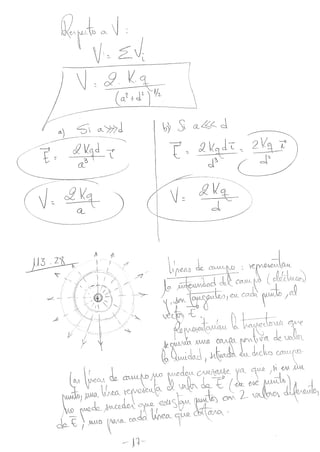 Respecto a V:
V = Σ Vi
V = 2·K·q / (a²+d²)^1/2
a) Si a>>>d
E = 2Kqd/a³ i
V = 2Kq/a
b) Si a<<<d
E = 2Kqd i/d³ = 2Kq/d² i
V = 2Kq/d
M3.28
Líneas de campo: representan
la intensidad del campo (eléctrico)
y son tangentes, en cada punto, al
vector E.
Representarían la trayectoria que
seguiría una carga positiva de valor
la unidad, situada en dicho campo.
Las líneas de campo no pueden cruzarse ya que, si en un
punto, una línea representa el valor de E (en ese punto),
no puede suceder que existan puntos con 2 valores diferentes
de E, uno para cada línea que cortara.
-17-